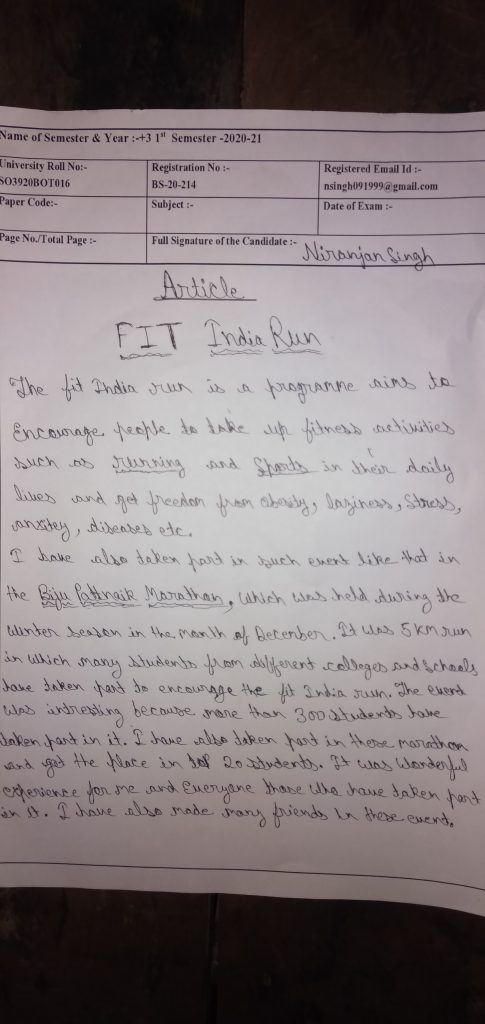 Name of Semester & Year :-+3 1st Semester -2020-21
University Roll No:-
SO3920BOT016
Registration No :-
BS-20-214
Registered Email Id :-
nsingh091999@gmail.com
Paper Code:-
Subject :-
Date of Exam :-
Page No./Total Page :-
Full Signature of the Candidate :-
Niranjan Singh
Article
FIT India Run
The fit India run is a programme aims to
Encourage people to take up fitness activities
such as running and Sports in their daily
lives and get freedom from obesity, laziness, Stress,
anxitey, diseases etc.
I have also taken part in such event like that in
the Biju Pattnaik Marathan, which was held during the
winter season in the month of December. It was 5 km run
in which many students from different colleges and schools
have taken part to encourage the fit India run. The event
was intresting because more than 300 students have
taken part in it. I have also taken part in these marathon
and got the place in top 20 students. It was wonderful
experience for me and Everyone those who have taken part
in it. I have also made many friends in these event.